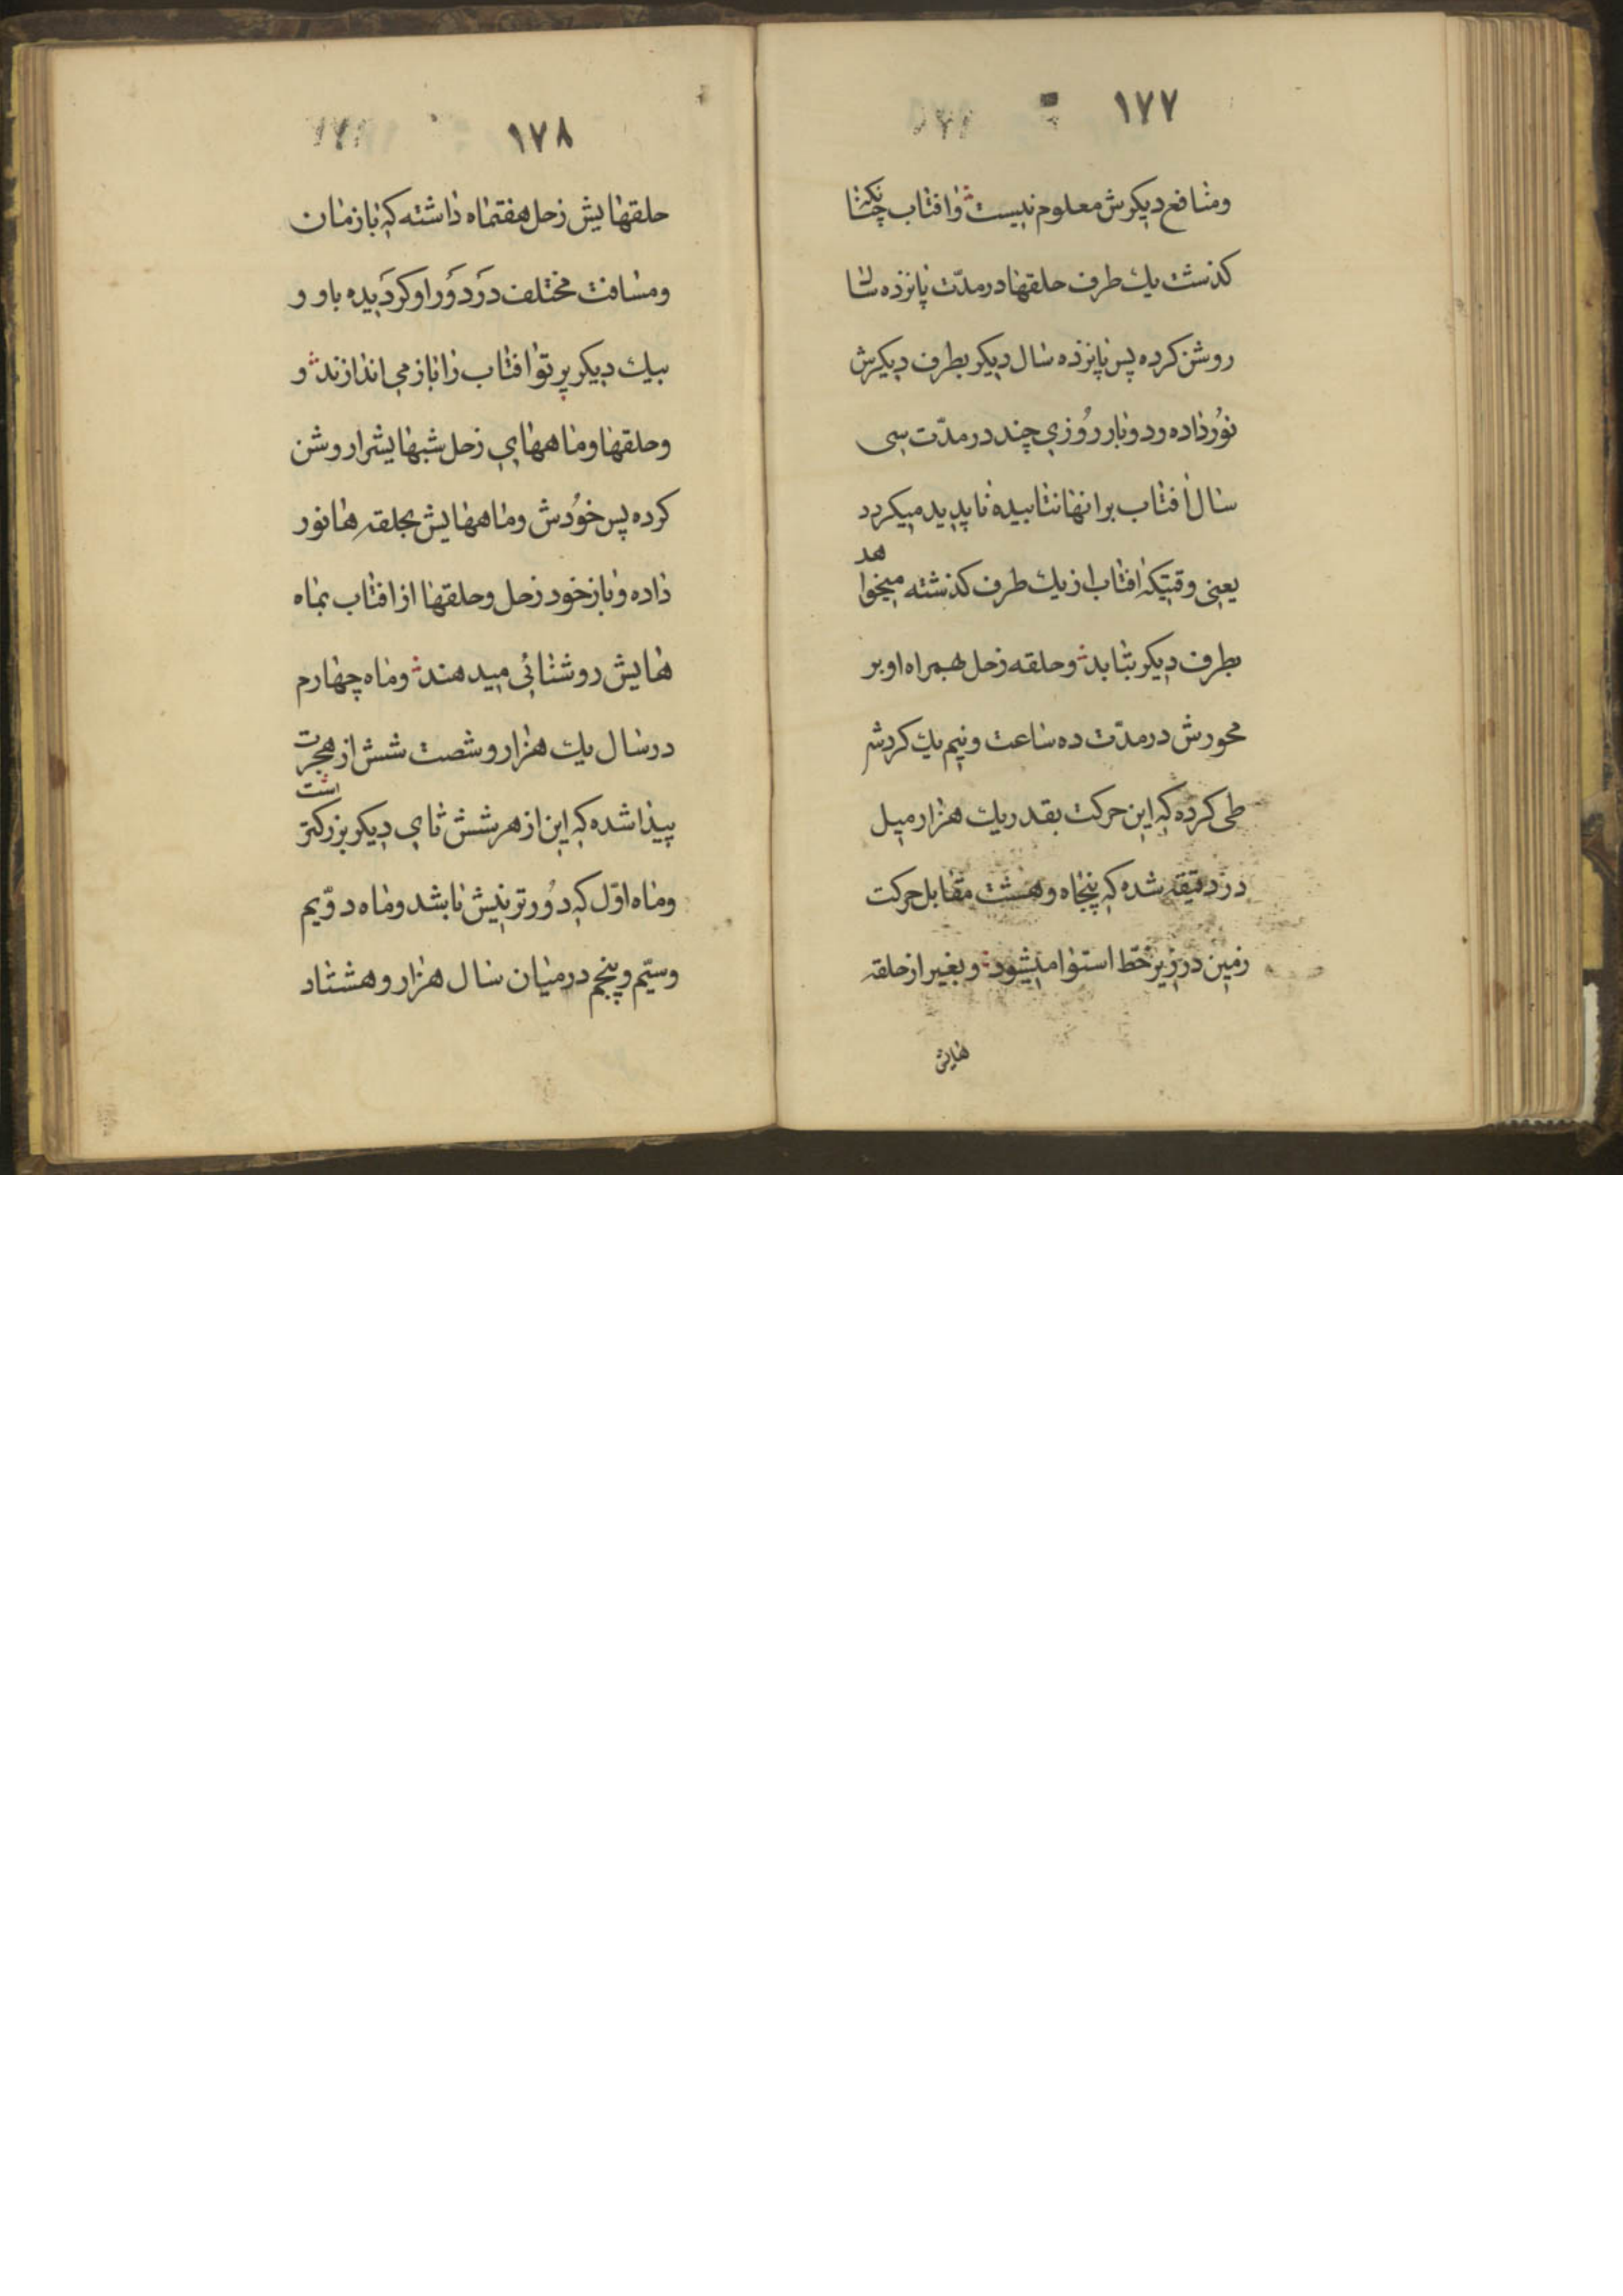 ١٧٧
ومنافع دیکرش معلوم نیست وافتاب چنانکه
کذشت یك طرف حلقها در مدّت پانزده سال
روشن کرده پس پانزده سال دیکر بطرف دیکرش
نوُر داده ودوبار روُزی چند در مدّت سی
سال افتاب برانها نتابیده ناپدید میکردد
یعنی وقتیکه افتاب از یك طرف کذشته میخواهد
بطرف دیکر بتابد وحلقه زحل همراه او بر
محورش در مدّت ده ساعت ونیم یك کردش
طی کرده که این حرکت بقدر یك هزار میل
در دقیقه شده که پنجاه وهشت مقابل حرکت
زمین در زیر خطّ استوا میشود وبغیر از حلقه
هایش
١٧٨
حلقهایش زحل هفتماه داشته که با زمان
ومسافت مختلف درَ دوَر او کردَیده باو و
بیك دیکر پرتو افتاب را باز می اندازند و
وحلقها وماههای زحل شبهایشرا روشن
کرده پس خوُدش وماههایش بحلقه ها نور
داده وباز خود زحل وحلقها از افتاب بماه
هایش روشنائی میدهند وماه چهارم
در سال یك هزار وشصت شش از هجرت
پیدا شده که این از هر شش تای دیکر بزرکتر است
وماه اوّل که دوُرترینیش باشد وماه دوّیم
وسیّم وپنجم در میان سال هزار وهشتاد